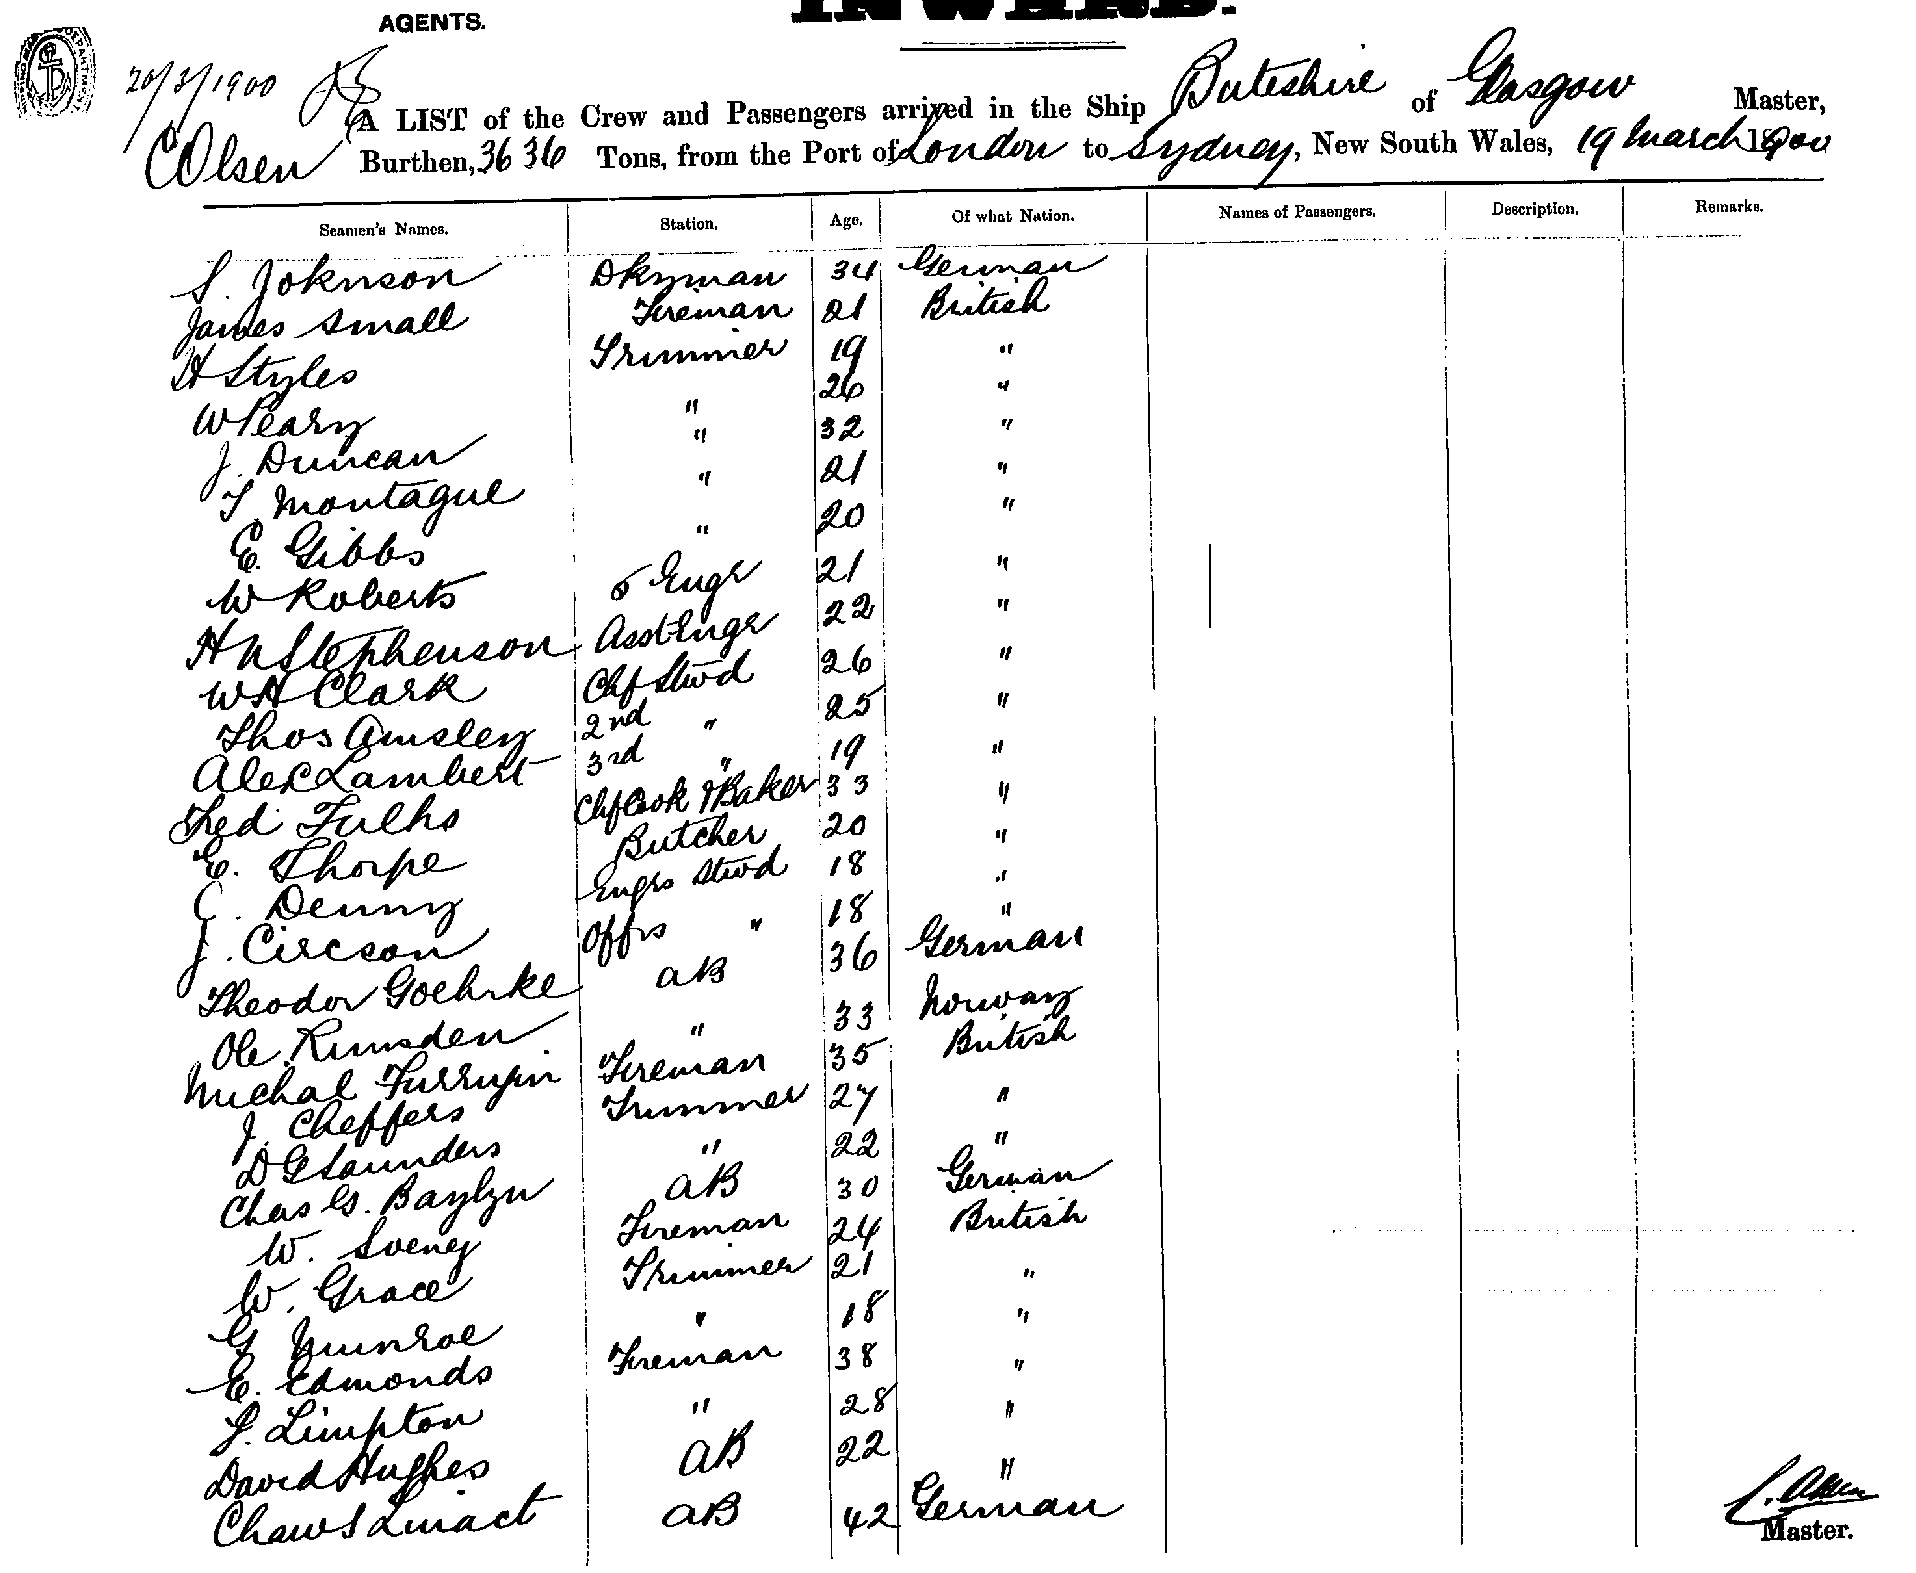 AGENTS.
INWARD.
20/3/1900
A LIST of the Crew and Passengers arrived in the Ship Buteshire of Glasgow Master,
C Olsen Burthen, 3636 Tons, from the Port of London to Sydney, New South Wales, 19 March 1900
Seamen's Names. Station. Age. Of what Nation. Names of Passengers. Description. Remarks.
S. Johnson Dkyman 34 German
James Small Fireman 21 British
H Styles Trimmer 19 "
W Peary " 26 "
J. Duncan " 32 "
T. Montague " 21 "
E. Gibbs " 20 "
W Roberts 5 Engr 21 "
H W Stephenson Asst Engr 22 "
W H Clark Chf Stwd 26 "
Thos Amsley 2nd " 25 "
Alex Lambert 3rd " 19 "
Fred Fulhs Chf Cook & Baker 33 "
E. Thorpe Butcher 20 "
C. Denny Engrs Stwd 18 "
J. Circson Offrs " 18 "
Theodor Goehrke AB 36 German
Ole Rumsden " 33 Norway
Michal Fireman 35 British
J. Cheffers Trimmer 27 "
D G Saunders " 22 "
Chas G. Baylyn AB 30 German
W. Sveney Fireman 24 British
W. Grace Trimmer 21 "
G Munroe " 18 "
E. Edmonds Fireman 38 "
S. Limpton " 28 "
David Hughes AB 22 "
AB 42 German
C. Olsen
Master.